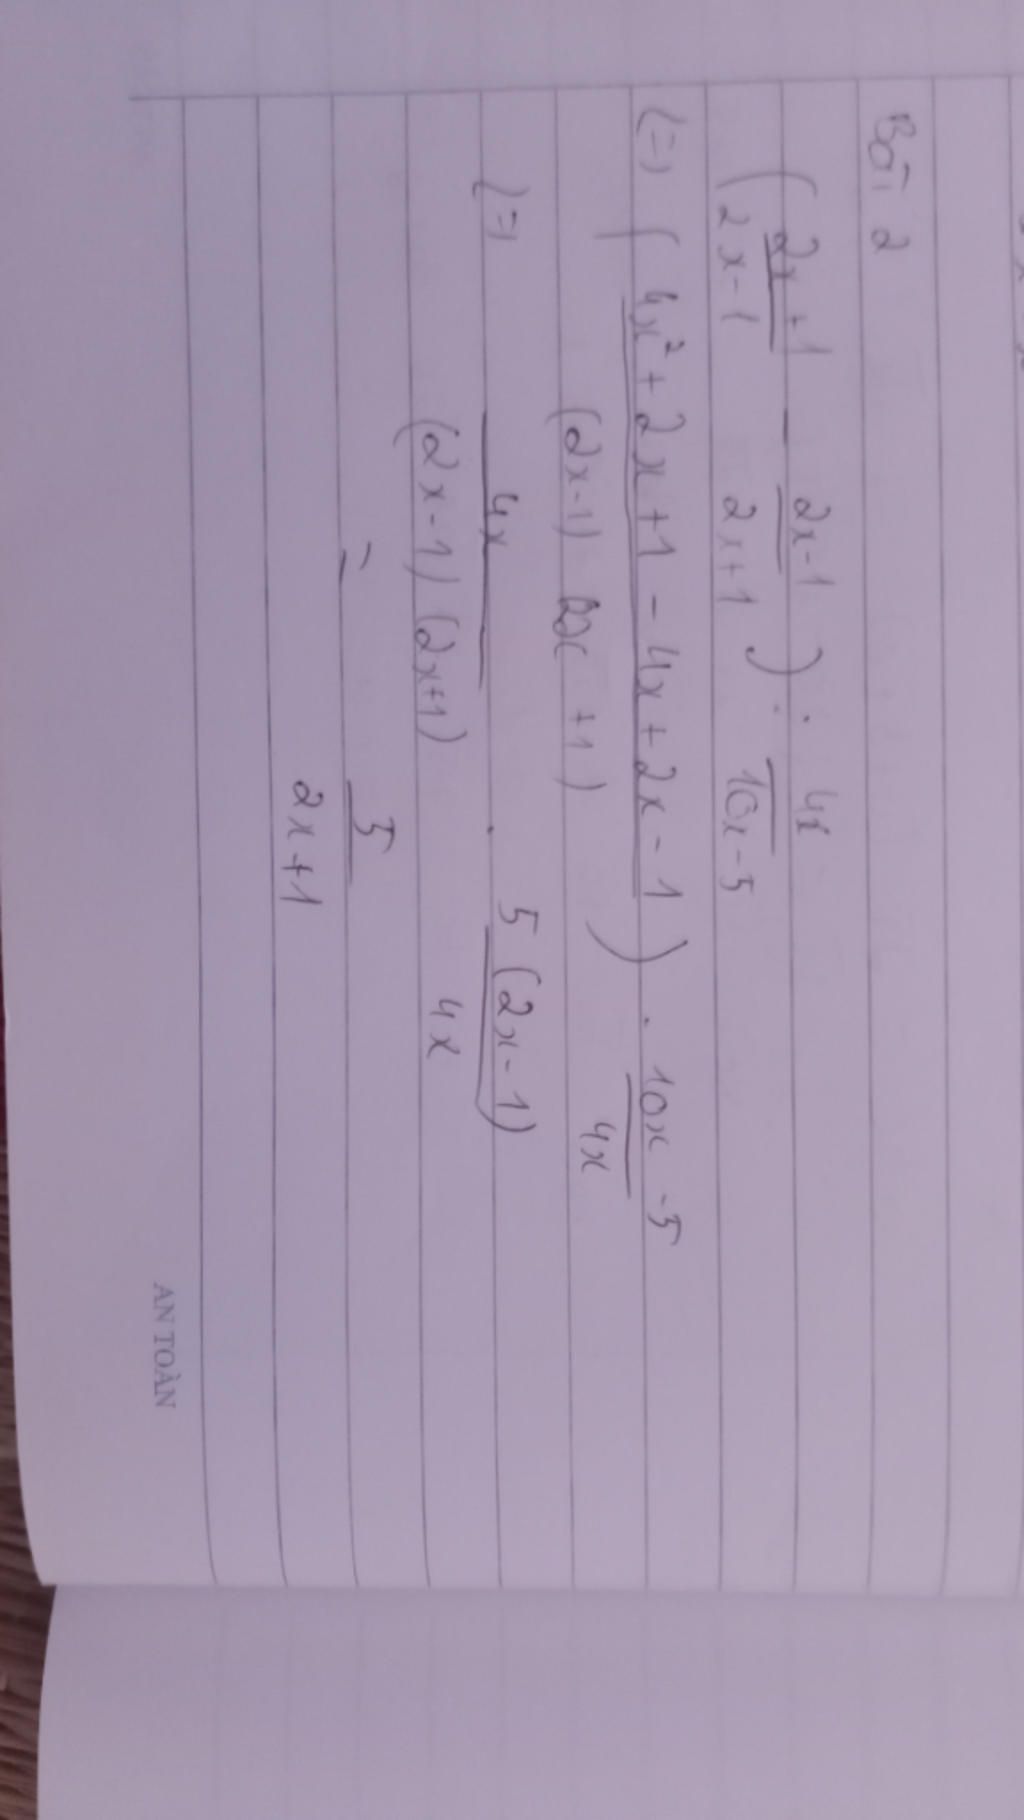 Bài 2
( 2x+1 / 2x-1 - 2x-1 / 2x+1 ) : 4x / 10x-5
(=) ( 4x² + 2x + 1 - 4x + 2x - 1 / (2x-1) (2x + 1) ) . 10x - 5 / 4x
(=) 4x / (2x-1) (2x+1) . 5 (2x-1) / 4x
= 5 / 2x+1
AN TOÀN